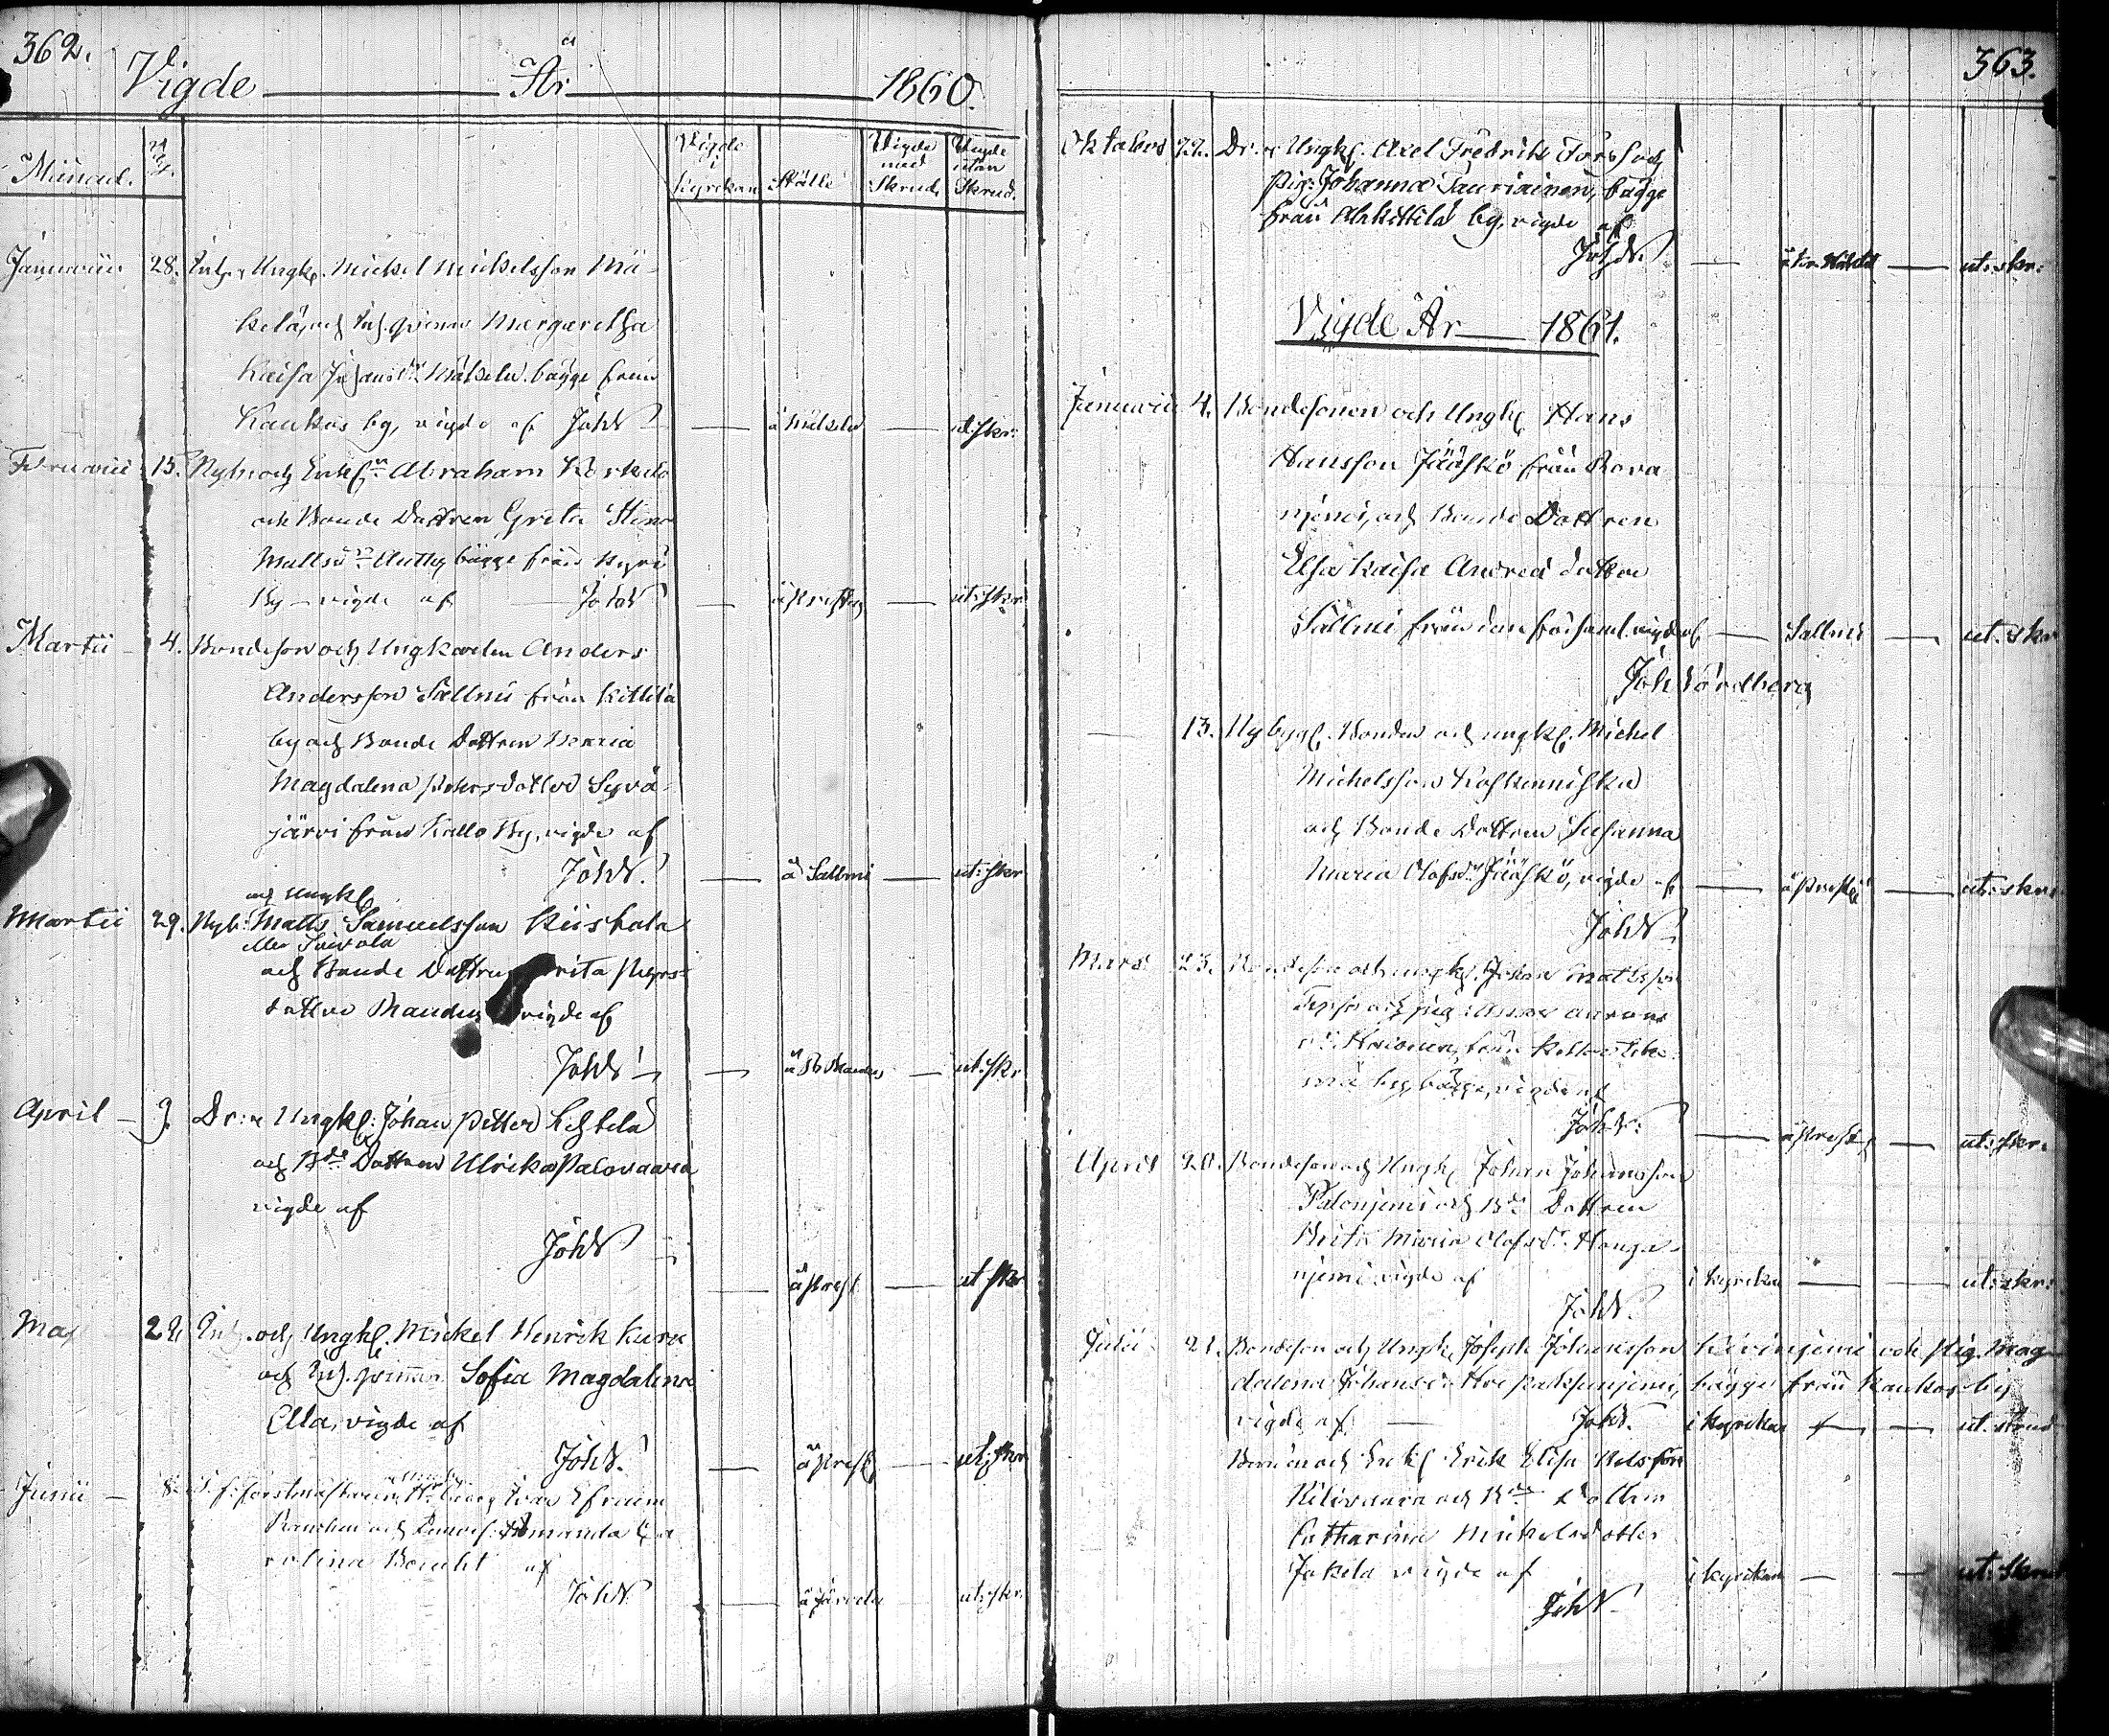 362.
Vigde År 1860.
Månad. Vigde i Kyrckan Ställe Vigde med Skrud. Vigde utan Skrud.
Januarii 28. Inh. Ungk. Mickel Mickelsson Mä-
kelä, och Inh. qvinnan Margaretha
Kaisa Johansdr Mäkelä bägge från
Kaukos by, vigde af JohN å Mäkelä ut: skr:
Februarii 15. Nyb: och Enkl. Abraham Korkelo
och Bonde Dottren Greta Stina
Mattsdr Autto, bägge från Kyrö
By – vigde af JohN å Prestg ut: skr
Martii 4. Bondeson och Ungkarlen Anders
Andersson Sallmi från Kittilä
by och Bonde Dottren Maria
Magdalena Pehrsdotter Syvä-
järvi från Kallo By, vigde af
JohN. å Sallmi ut: skr
och Ungk
Martii 29. Nyb: Matts Samuelsson Kiistala
eller Saivola
och Bonde Dottren Brita Pehrs-
dotter Mandus vigde af
JohN å Mandus ut: skr
April 9. Dr: o Ungk: Johan Petter Lehtelä
och Bde Dottren Ulrika Palovaara
vigde af
JohN
å Prest ut skr
Maj 22. Inh. och Ungk. Mickel Henrik Kuru
och Inh. qvinnan Sofia Magdalena
Ella, vigde af
JohN. å Prestg ut: skr
Junii 8. T. f: Forstmästaren, Georg Ivar Efraim
och Amanda Ca
rolina Boucht af
JohN å Järvelä ut: skr.
363.
Oktober 22. Dr: o Ungk. Axel Fredrik Fors och
Pig: Johanna Tauriainen, bägge
från Alakittilä by, vigde af
JohN. ut: skr:
Vigde År 1861.
Januarii 4. Bondesonen och Ungk Hans
Hansson Jääskö från Rova
njemi, och Bonde Dottren
Elsa Kaisa Andreä dotter
Sallmi från denna församl. vigde af Sallmi ut: skr
Joh Nordberg
13. Nybygg. Bonden och ungk. Michel
Michelsson Koskenniska
och Bonde Dottren Susanna
Maria Olofsdr Jääskö, vigde af å Prestg ut: skr
JohN
Mars 23. Bondeson och ungk. Johan Mattsson
och pig: Anna
från
må by, bägge, vigde af
JohN: å Prestg ut: skr.
April 20. Bondeson och Ungk Johan Johansson
Palonjemi och Bde Dottren
Brita Maria Olofsdr Hanga-
njemi vigde af i kyrckan ut: skr:
JohN.
Julii 21. Bondeson och Ungk. Joseph Johansson Kivinjemi och Pig. Mag-
dalena Johansdr bägge från Kaukos by
vigde af JohN. i kyrckan ut. skrud
och Enkl Erik Elisa Nilsson
Kilivaara och Bde Dottren
Catharina Mickelsdotter
Jakela vigde af i kyrckan ut: Skrud
JohN